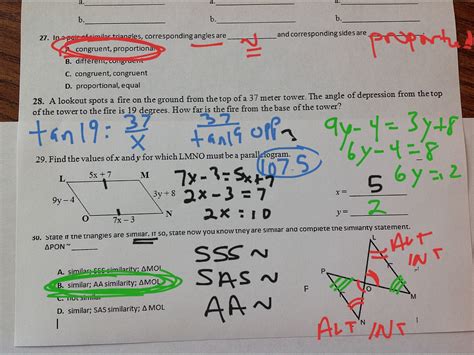 a. a.
b. b.
27. In a pair of similar triangles, corresponding angles are and corresponding sides are
≅ proportional
A. congruent, proportional
B. different, congruent
C. congruent, congruent
D. proportional, equal
28. A lookout spots a fire on the ground from the top of a 37 meter tower. The angle of depression from the top
of the tower to the fire is 19 degrees. How far is the fire from the base of the tower?
tan19 = 37/x 37/tan19 opp
107.5
9y-4=3y+8
6y-4=8
6y=12
29. Find the values of x and y for which LMNO must be a parallelogram.
L 5x + 7 M
9y – 4 3y + 8
O 7x – 3 N
7x-3=5x+7
2x-3=7
2x=10
x = 5
y = 2
30. State if the triangles are similar. If so, state how you know they are similar and complete the similarity statement.
ΔPON ~
A. similar; SSS similarity; ΔMOL
B. similar; AA similarity; ΔMOL
C. not similar
D. similar; SAS similarity; ΔMOL
SSS ~
SAS ~
AA ~
L ALT INT
P
F O M
N
ALT INT